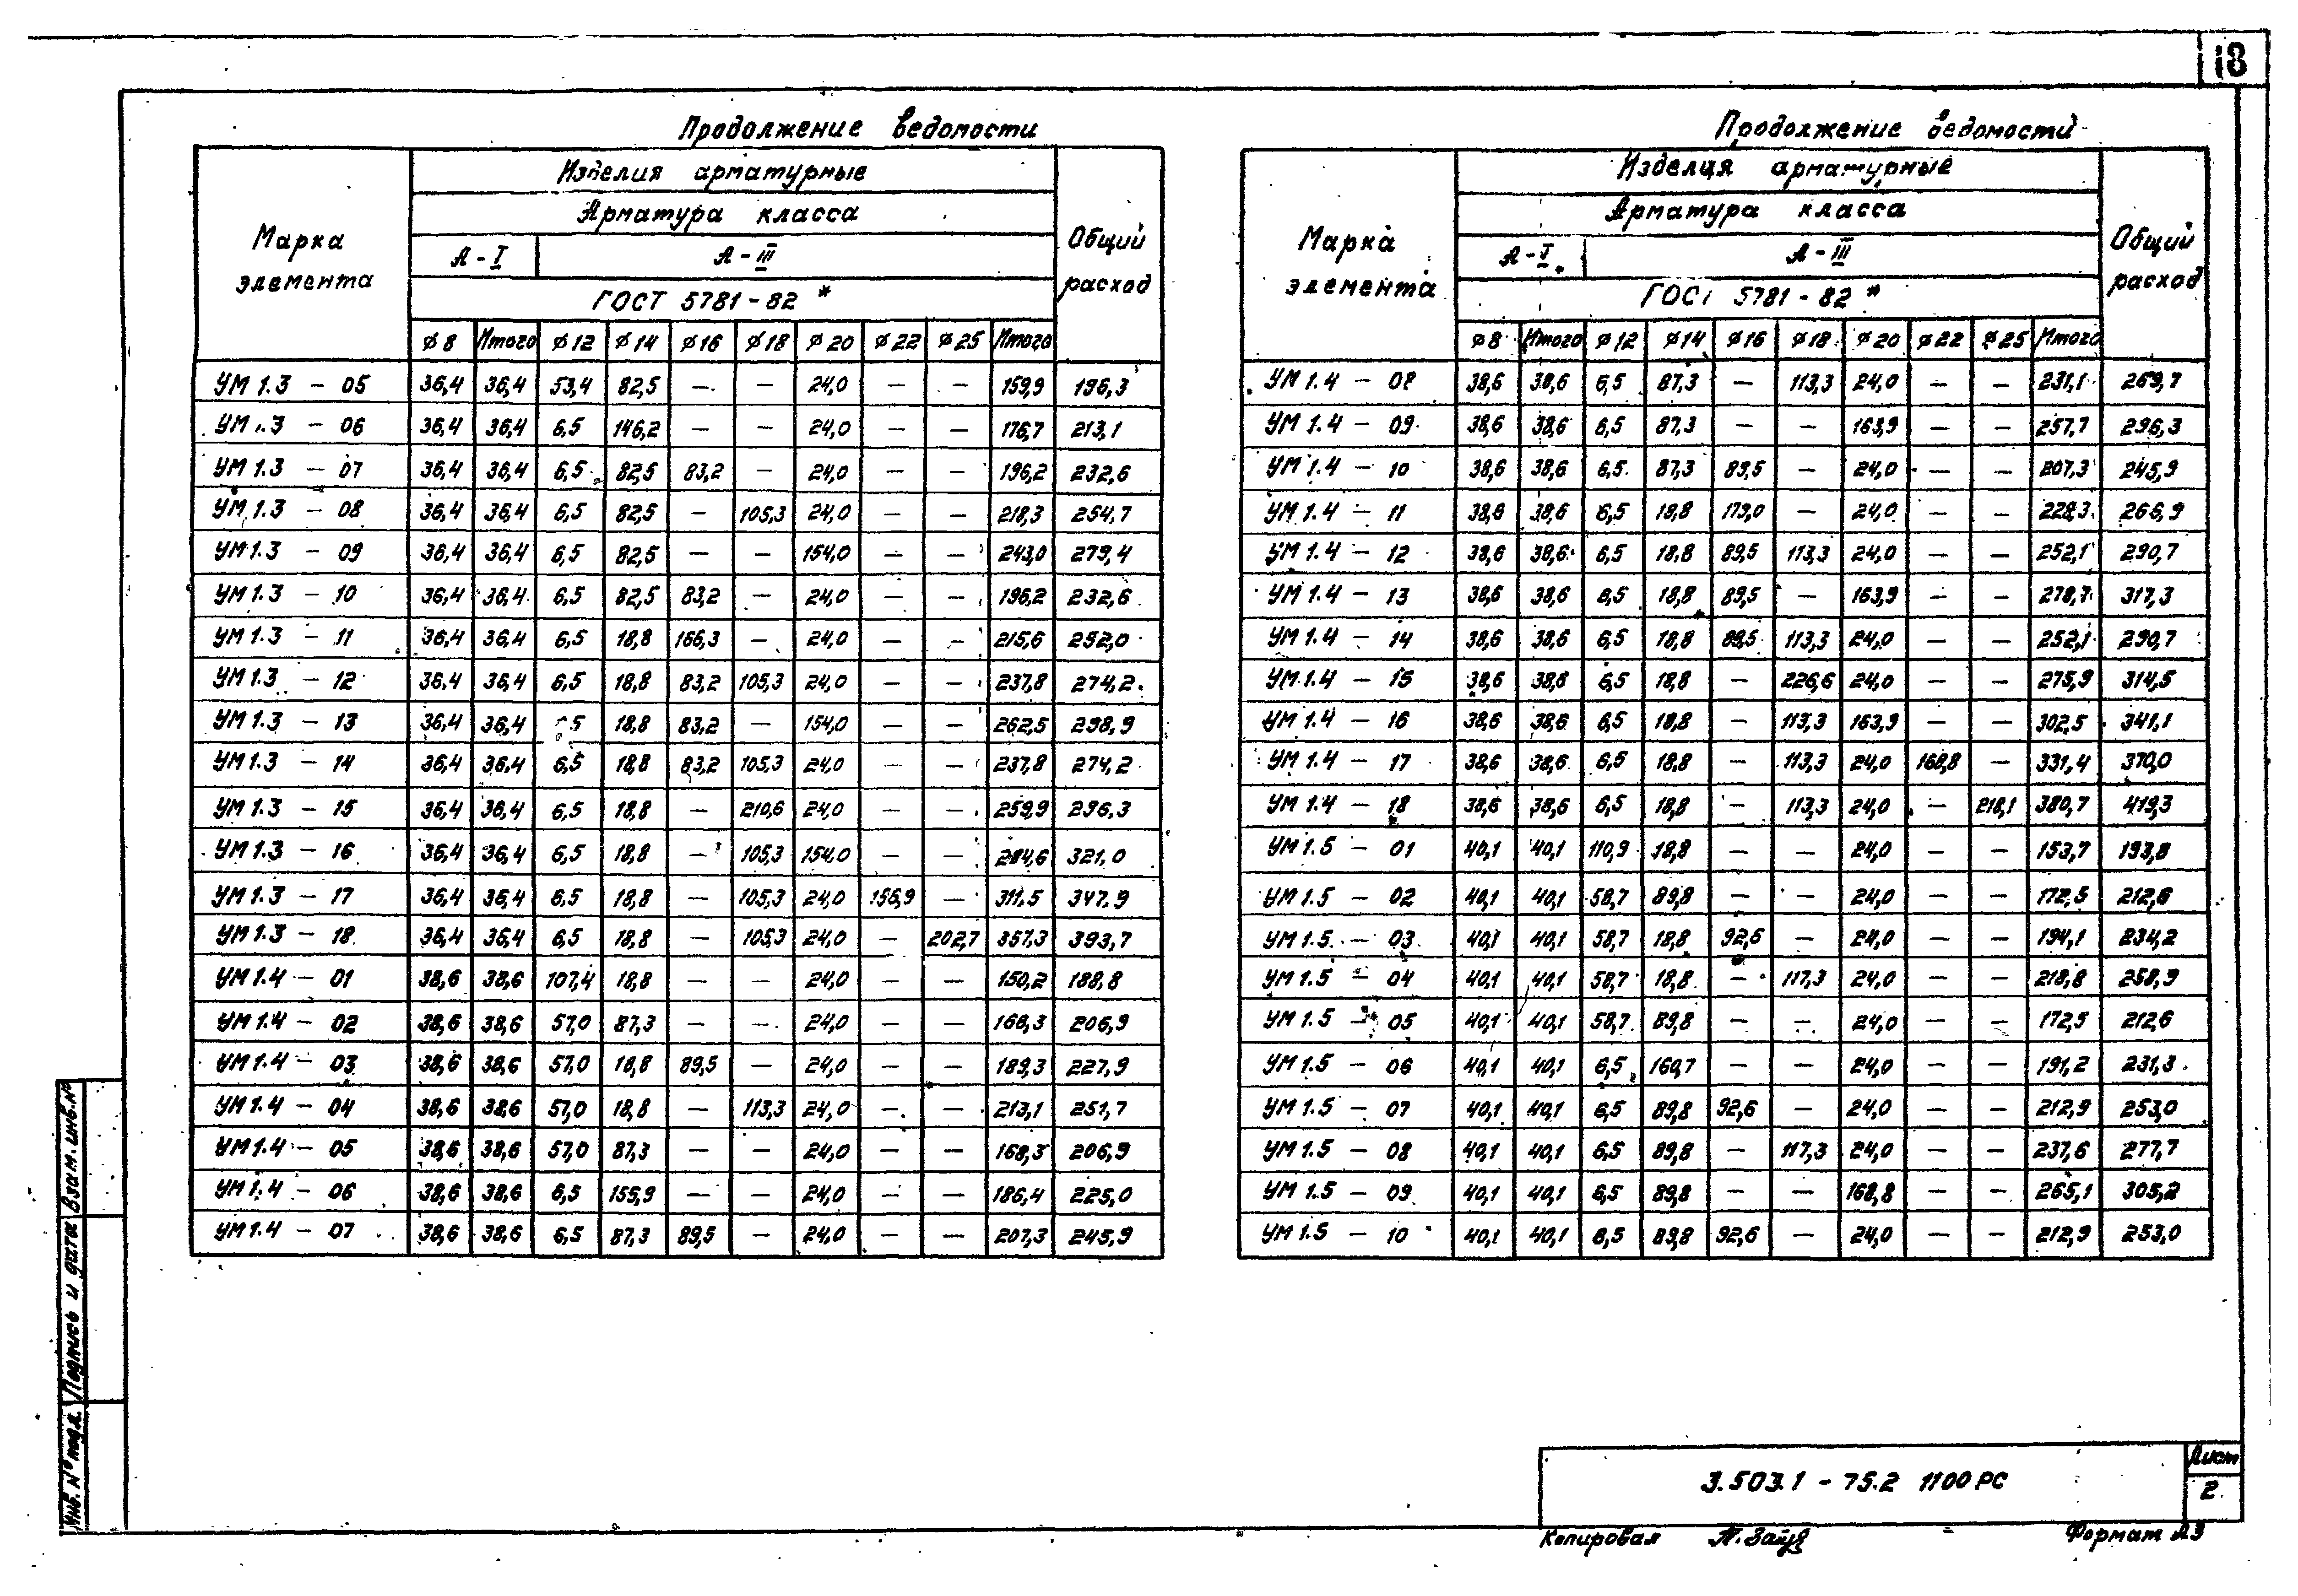 18
Продолжение ведомости
Марка элемента
Изделия арматурные
Общий расход
Арматура класса
А - I А - III
ГОСТ 5781 - 82 *
⌀8 Итого ⌀12 ⌀14 ⌀16 ⌀18 ⌀20 ⌀22 ⌀25 Итого
УМ 1.3 - 05 36,4 36,4 53,4 82,5 — — 24,0 — — 159,9 196,3
УМ 1.3 - 06 36,4 36,4 6,5 146,2 — — 24,0 — — 176,7 213,1
УМ 1.3 - 07 36,4 36,4 6,5 82,5 83,2 — 24,0 — — 196,2 232,6
УМ 1.3 - 08 36,4 36,4 6,5 82,5 — 105,3 24,0 — — 218,3 254,7
УМ 1.3 - 09 36,4 36,4 6,5 82,5 — — 154,0 — — 243,0 279,4
УМ 1.3 - 10 36,4 36,4 6,5 82,5 83,2 — 24,0 — — 196,2 232,6
УМ 1.3 - 11 36,4 36,4 6,5 18,8 166,3 — 24,0 — — 215,6 252,0
УМ 1.3 - 12 36,4 36,4 6,5 18,8 83,2 105,3 24,0 — — 237,8 274,2
УМ 1.3 - 13 36,4 36,4 6,5 18,8 83,2 — 154,0 — — 262,5 298,9
УМ 1.3 - 14 36,4 36,4 6,5 18,8 83,2 105,3 24,0 — — 237,8 274,2
УМ 1.3 - 15 36,4 36,4 6,5 18,8 — 210,6 24,0 — — 259,9 296,3
УМ 1.3 - 16 36,4 36,4 6,5 18,8 — 105,3 154,0 — — 284,6 321,0
УМ 1.3 - 17 36,4 36,4 6,5 18,8 — 105,3 24,0 156,9 — 311,5 347,9
УМ 1.3 - 18 36,4 36,4 6,5 18,8 — 105,3 24,0 — 202,7 357,3 393,7
УМ 1.4 - 01 38,6 38,6 107,4 18,8 — — 24,0 — — 150,2 188,8
УМ 1.4 - 02 38,6 38,6 57,0 87,3 — — 24,0 — — 168,3 206,9
УМ 1.4 - 03 38,6 38,6 57,0 18,8 89,5 — 24,0 — — 189,3 227,9
УМ 1.4 - 04 38,6 38,6 57,0 18,8 — 113,3 24,0 — — 213,1 251,7
УМ 1.4 - 05 38,6 38,6 57,0 87,3 — — 24,0 — — 168,3 206,9
УМ 1.4 - 06 38,6 38,6 6,5 155,9 — — 24,0 — — 186,4 225,0
УМ 1.4 - 07 38,6 38,6 6,5 87,3 89,5 — 24,0 — — 207,3 245,9
Продолжение ведомости
Марка элемента
Изделия арматурные
Общий расход
Арматура класса
А - I А - III
ГОСТ 5781 - 82 *
⌀8 Итого ⌀12 ⌀14 ⌀16 ⌀18 ⌀20 ⌀22 ⌀25 Итого
УМ 1.4 - 08 38,6 38,6 6,5 87,3 — 113,3 24,0 — — 231,1 269,7
УМ 1.4 - 09 38,6 38,6 6,5 87,3 — — 163,9 — — 257,7 296,3
УМ 1.4 - 10 38,6 38,6 6,5 87,3 89,5 — 24,0 — — 207,3 245,9
УМ 1.4 - 11 38,6 38,6 6,5 18,8 179,0 — 24,0 — — 228,3 266,9
УМ 1.4 - 12 38,6 38,6 6,5 18,8 89,5 113,3 24,0 — — 252,1 290,7
УМ 1.4 - 13 38,6 38,6 6,5 18,8 89,5 — 163,9 — — 278,7 317,3
УМ 1.4 - 14 38,6 38,6 6,5 18,8 89,5 113,3 24,0 — — 252,1 290,7
УМ 1.4 - 15 38,6 38,6 6,5 18,8 — 226,6 24,0 — — 275,9 314,5
УМ 1.4 - 16 38,6 38,6 6,5 18,8 — 113,3 163,9 — — 302,5 341,1
УМ 1.4 - 17 38,6 38,6 6,5 18,8 — 113,3 24,0 168,8 — 331,4 370,0
УМ 1.4 - 18 38,6 38,6 6,5 18,8 — 113,3 24,0 — 218,1 380,7 419,3
УМ 1.5 - 01 40,1 40,1 110,9 18,8 — — 24,0 — — 153,7 193,8
УМ 1.5 - 02 40,1 40,1 58,7 89,8 — — 24,0 — — 172,5 212,6
УМ 1.5 - 03 40,1 40,1 58,7 18,8 92,6 — 24,0 — — 194,1 234,2
УМ 1.5 - 04 40,1 40,1 58,7 18,8 — 117,3 24,0 — — 218,8 258,9
УМ 1.5 - 05 40,1 40,1 58,7 89,8 — — 24,0 — — 172,5 212,6
УМ 1.5 - 06 40,1 40,1 6,5 160,7 — — 24,0 — — 191,2 231,3
УМ 1.5 - 07 40,1 40,1 6,5 89,8 92,6 — 24,0 — — 212,9 253,0
УМ 1.5 - 08 40,1 40,1 6,5 89,8 — 117,3 24,0 — — 237,6 277,7
УМ 1.5 - 09 40,1 40,1 6,5 89,8 — — 168,8 — — 265,1 305,2
УМ 1.5 - 10 40,1 40,1 6,5 89,8 92,6 — 24,0 — — 212,9 253,0
Инв. № подл. Подпись и дата Взам. инв. №
3.503.1 - 75.2 1100 РС
Лист
2
Копировал
Формат А3